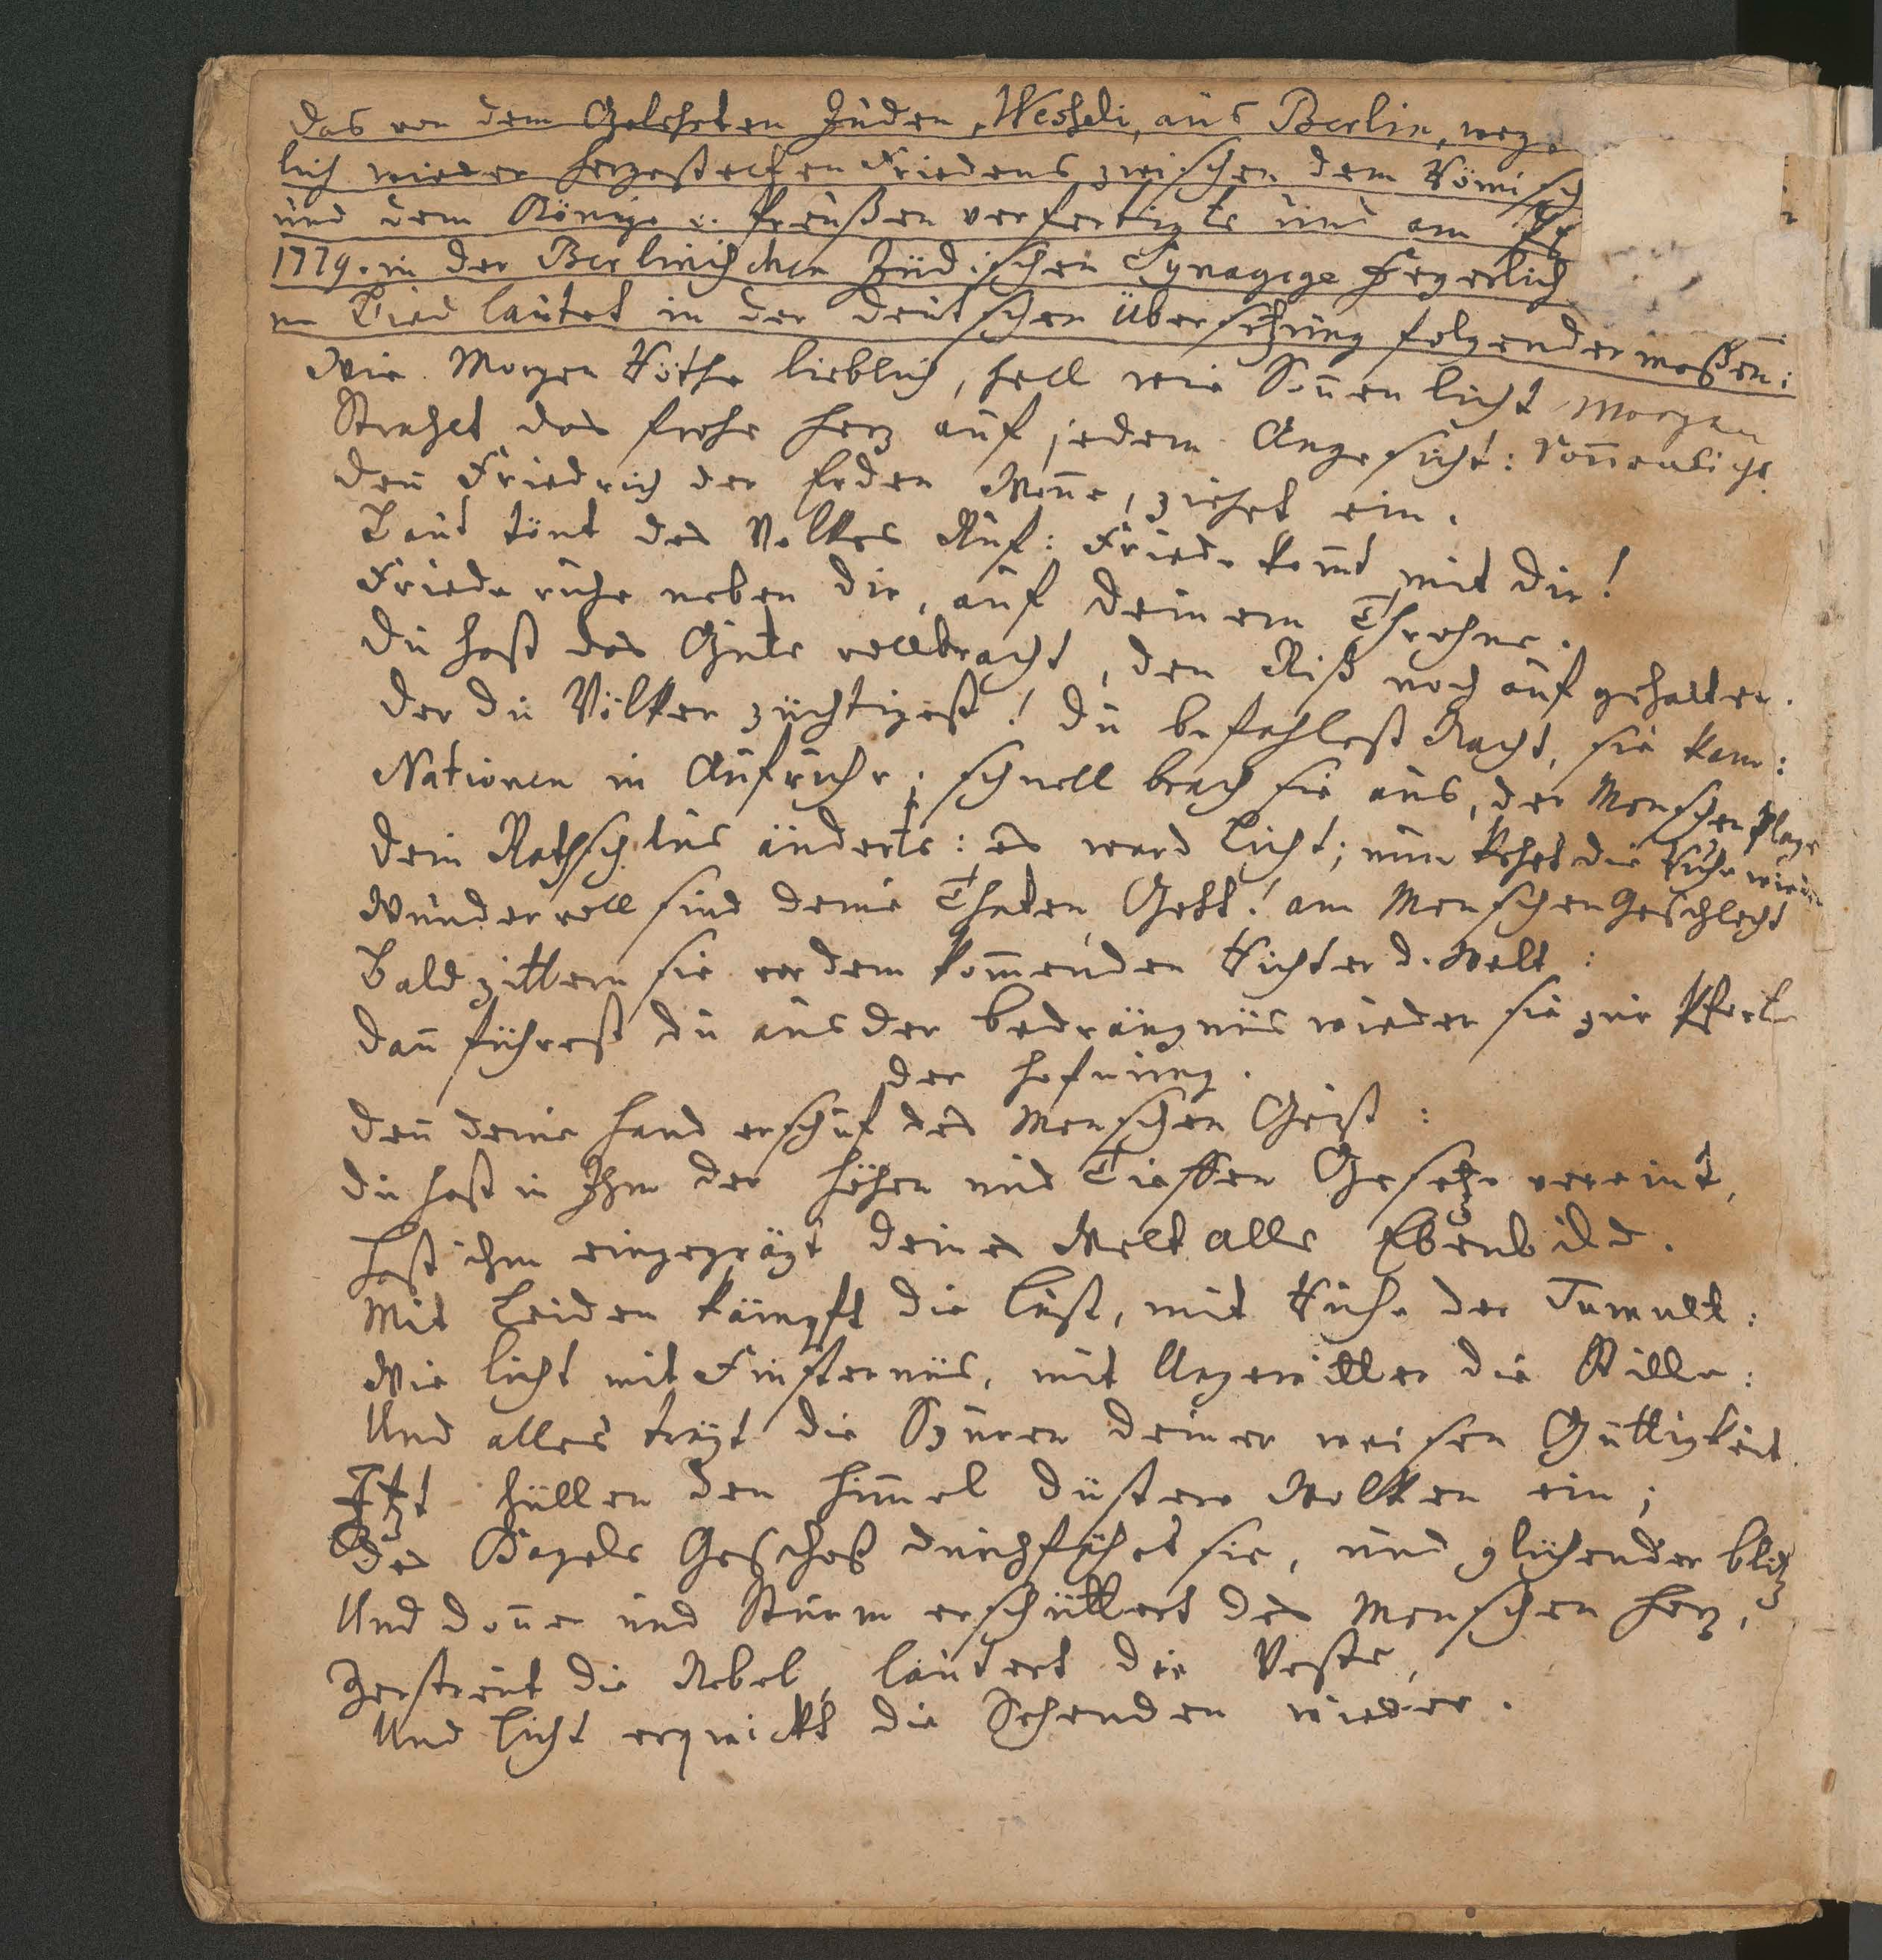 Das von dem Gelehrten Juden, Wesseli, aus Berlin, weg
lich wieder hergestelten Friedens zwischen dem Römisch
und dem Könige v. Preußen verfertigte und am
1779. in der Berlinischen Jüdischen Synagoge feyerlich
ne Lied lautet in der deutschen Übersetzung folgender maßen:
Wie Morgen Röthe lieblich, hell wie Soñen licht Morgen
Strahlet das frohe Herz auf jedem Angesicht: Soñenlicht
Deñ Friedrich der Erden Woñe, ziehet ein.
Laut tönt des Volkes Ruf: Friede kom̃t mit Dir!
Friede ruhe neben dir, auf deinem Throhne.
Du hast das Gute vollbracht, den Riß noch auf gehalten.
Der du Völker züchtigest! Du befahlest Nacht, sie kam:
Nationen in Aufruhr; schnell brach sie aus, der Menschen Plage
Dein Rathschlus änderts: es ward Licht; nun kehrt die Ruhe wieder
Wundervoll sind deine Thaten, Gott! am Menschen Geschlecht
Bald zittern sie vor dem kom̃enden Richter d. Welt:
Dañ führest du aus der Bedrängnüs wieder sie zur Pforte
der Hofnung.
Deñ deine Hand erschuf des Menschen Geist:
Du hast in Ihm der Höhen und Tieffen Gesetze vereint,
Hast ihm eingeprägt deines Welt alls Ebenbild.
Mit Leiden kämpft die Lust, mit Ruhe der Tumult:
Wie Licht mit Finsternüs, mit Ungewitter die Stille:
Und alles trägt die Spuren deiner weisen Güttigkeit.
Itzt hüllen den Him̃el düstere Wolken ein;
Des Hagels Geschoß durchfährt sie, und glühender Blitz
Und Doñer und Sturm erschüttert des Menschen Herz,
Zerstreut die Nebel, läutert die Veste,
Und Licht erquickt die Sehenden wieder.